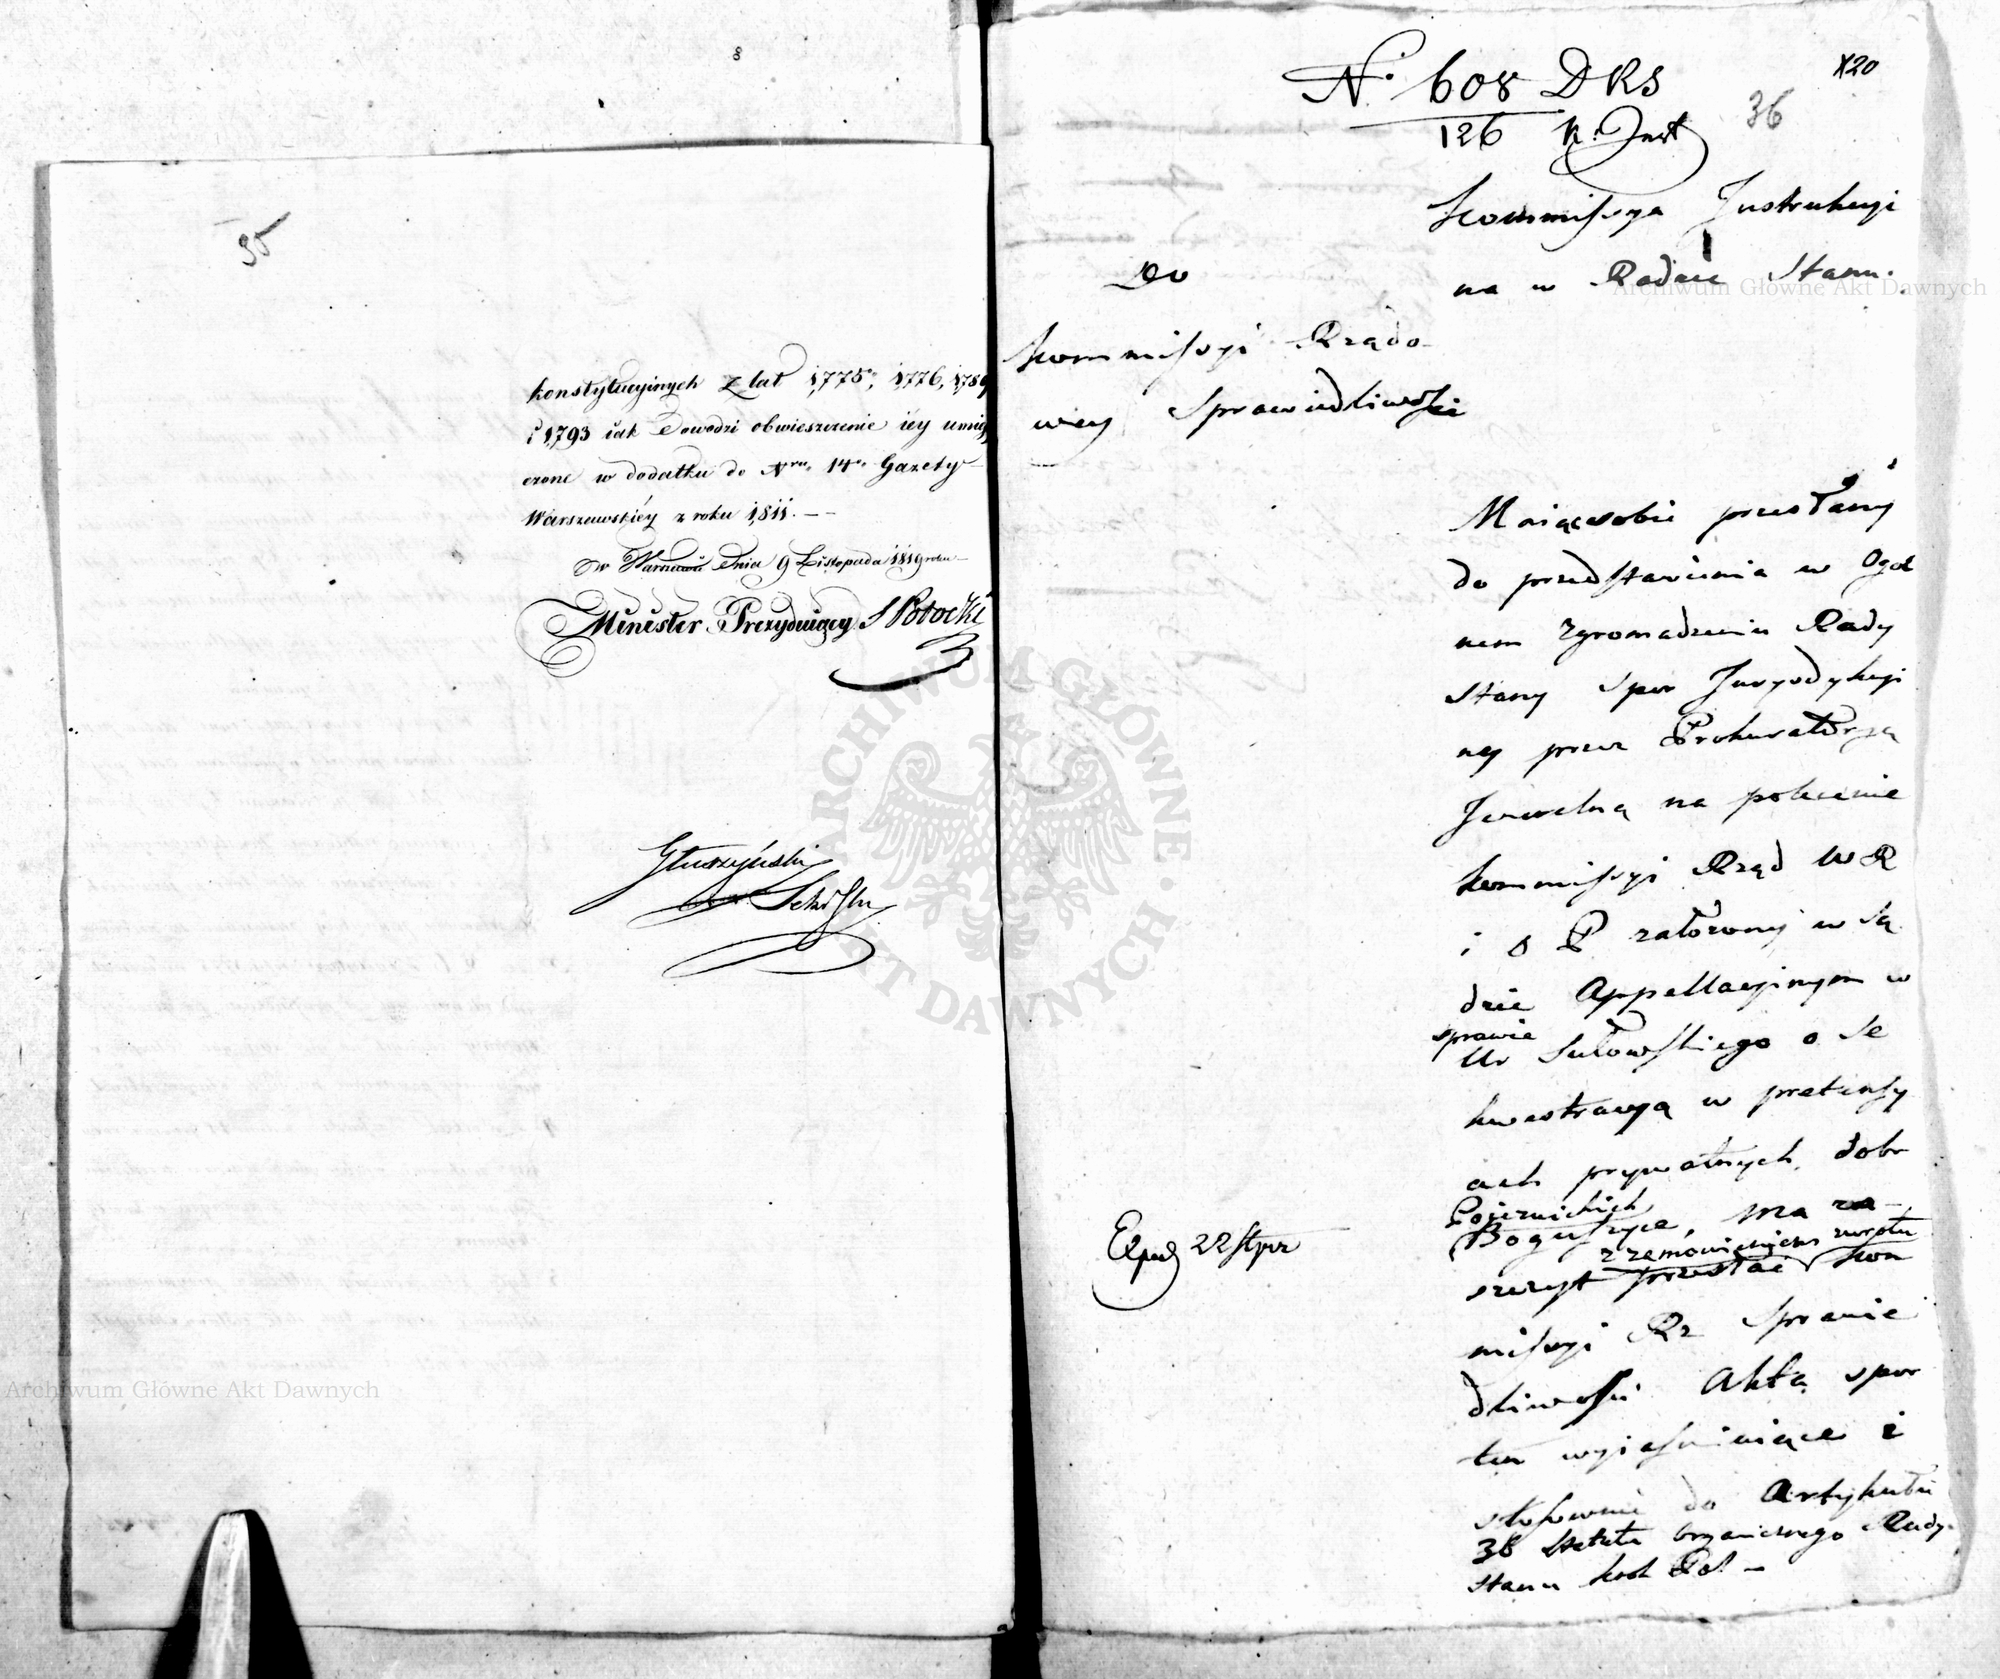 35
konstytucyinych z lat 1,775, 1,776, 1,789
i 1,793 iak Dowodzi obwieszczenie iey umieś
czone w dodatku do Nru 14o Gazety
Warszawskiéy z roku 1,811. — —
w Warszawie Dnia 9 Listopada 1819 roku —
Minister Prezyduiący S Potocki
Głuszyński
Sekr Jlny
N. 608 DKS
126 K. Inst
X20
36
Kommissya Instrukcyi
na w Radzie Stanu.
Do
Kommissyi Rządo
wey Sprawiedliwości
Maiąc sobie przesłany
do przedstawienia w Ogol
nem Zgromadzeniu Rady
Stanu Spor Juryzdykcyi
ny przez Prokuratoryą
Jeneralną na polecenie
Kommissyi Rząd W R
i O P założony w Są
dzie Appellacyinym w
sprawie
Ur Sułowskiego o Se
kwestracyą w pretensy
ach prywatnych, dobr
Pojeznickich
Boguszyce, ma za
z zamówieniem zwrotu
szczyt przesłać Kom
missyi Rz Sprawie
dliwości Akta spor
ten wyiaśniaiące i
stosownie do Artykułu
38 Statutu organicznego Rady
Stanu Król Pol —
Exped 22 Stycz
Archiwum Główne Akt Dawnych
Archiwum Główne Akt Dawnych
ARCHIWUM GŁÓWNE AKT DAWNYCH